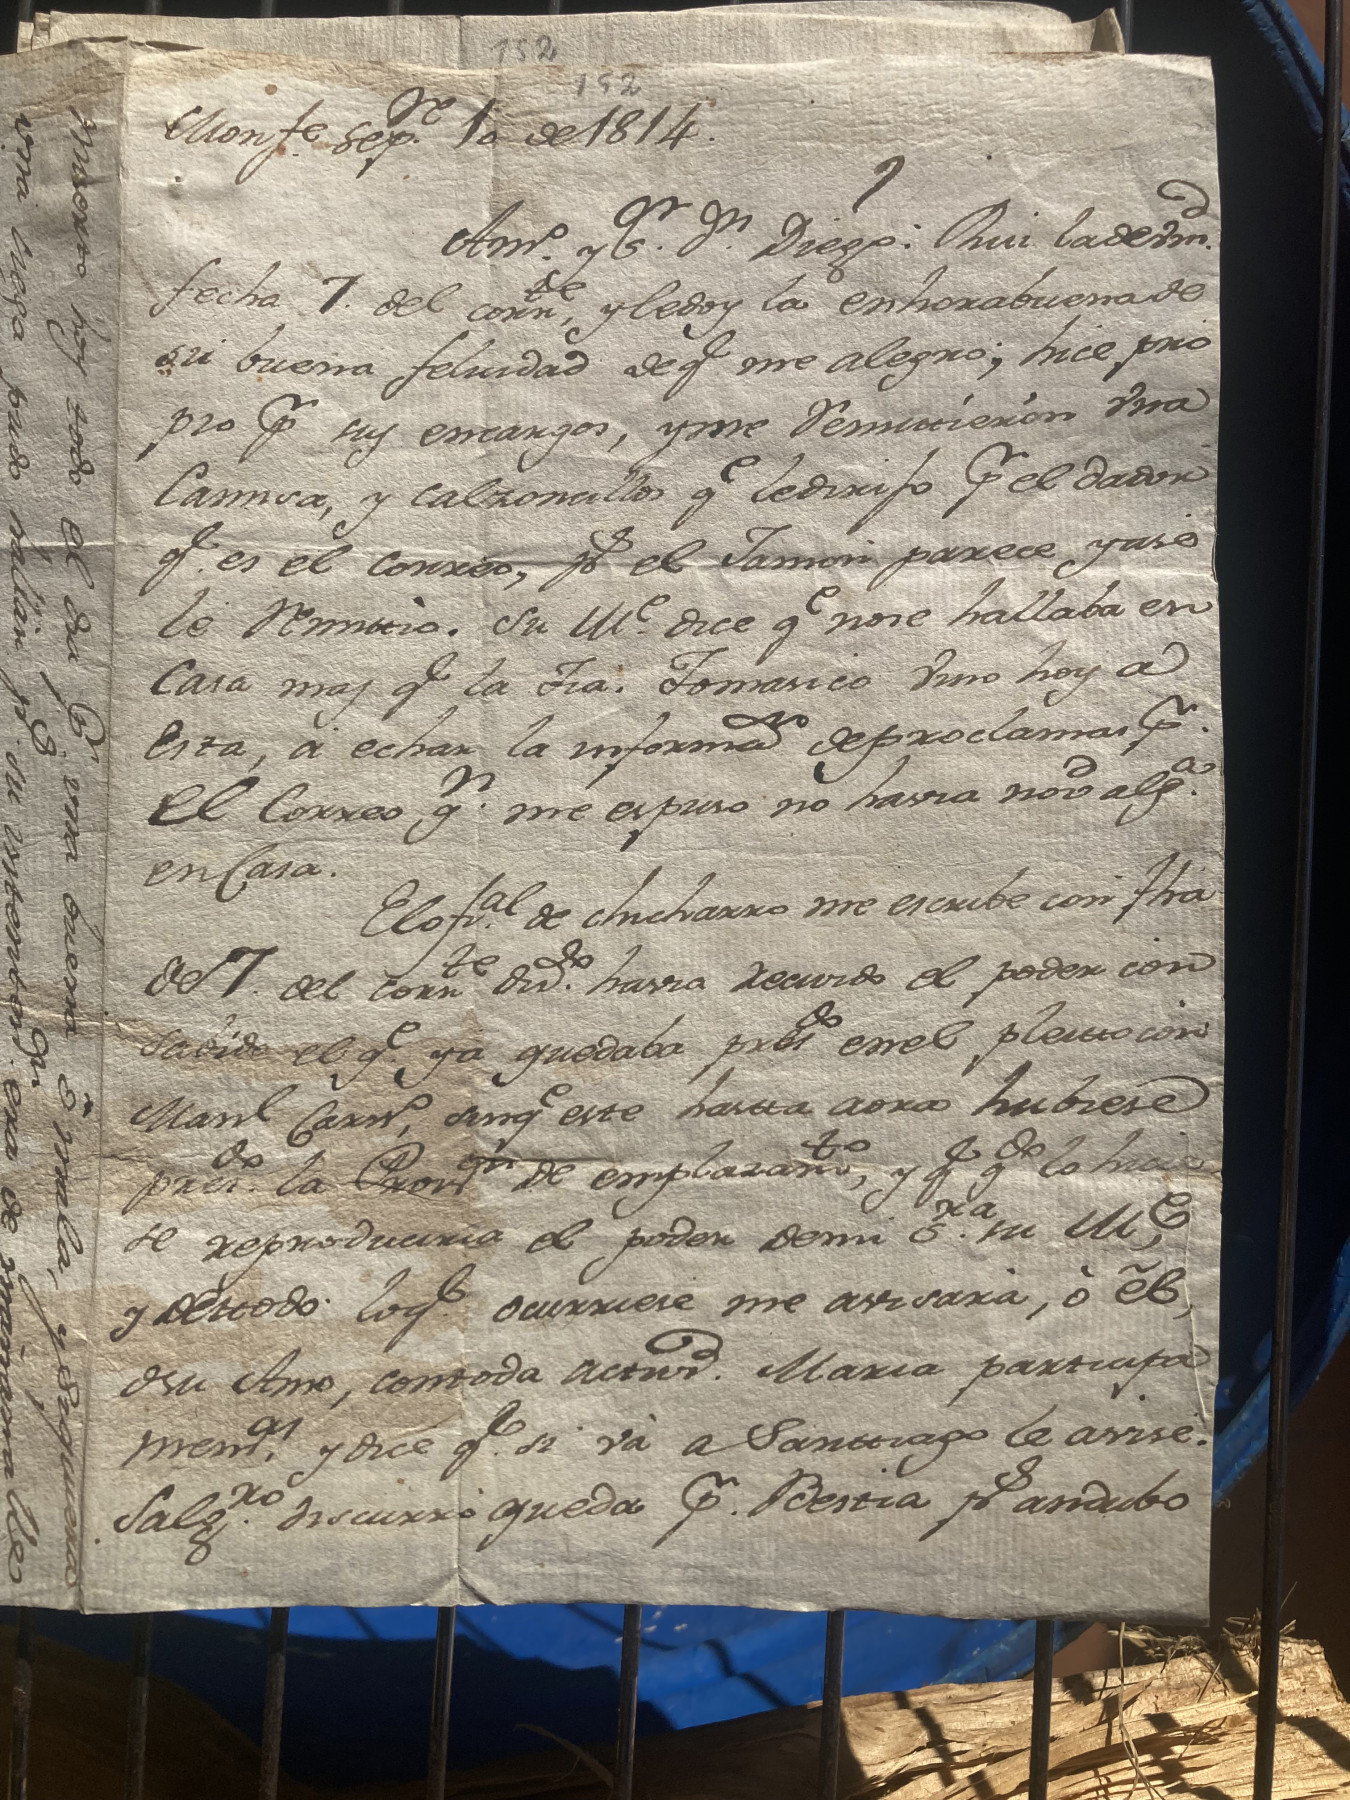 152
152
Monf.e Sep.re 10 de 1814.
Am.o y S.r D.n Diego: Rui la de Vm.d
fecha 7. del corr.te, y le doy la enhorabuena de
su buena felicidad de q.e me alegro; hice pro
pio p.r sus encargos, y me Remittieron una
Camisa, y Calzoncillos q.e le dirijo p.r el dador
q.e es el Correo, p.s el Jamon parece ya se
le Remittio. Su M.e dice q.e no se hallaba en
Casa mas q.e la Tia. Tomasico vino hoy a
Esta, a echar la informa.on de proclamas p.r
El Correo q.n me espuso no havia nov.d alg.a
en Casa.
El ofi.al de chicharro me escribe con fha
de 7. del corr.te dic.do havia recivido el poder con
el q.e ya quedaba pres.do en el pleitto con
Man.l Carn.o, sin q.e este hastta aora hubiese
pres.do la Prov.on de emplazam.to, y q.e q.do lo hicie
se reproduciria el poder de mi S.ra su M.e,
y de ttodo lo q.e ocurriese me avisaria, ò à èl,
o su Amo, con toda activ.d. Maria participa
mem.as y dice q.e si và a Santtiago le avise.
Salg.do discurro queda p.r Bestia p.s andubo
muerto hoy todo el dia p.r una buena ò mala, y siquiera
una ciega pudo hallar p.s su intencion era de mañana le